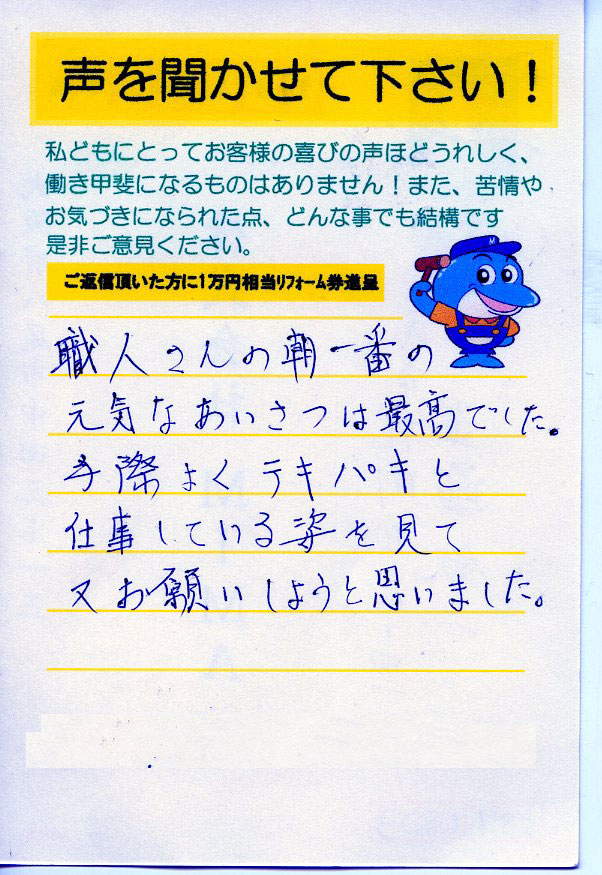 声を聞かせて下さい！
私どもにとってお客様の喜びの声ほどうれしく、
働き甲斐になるものはありません！また、苦情や
お気づきになられた点、どんな事でも結構です
是非ご意見ください。
ご返信頂いた方に1万円相当リフォーム券進呈
職人さんの朝一番の
元気なあいさつは最高でした。
手際よくテキパキと
仕事している姿を見て
又お願いしようと思いました。